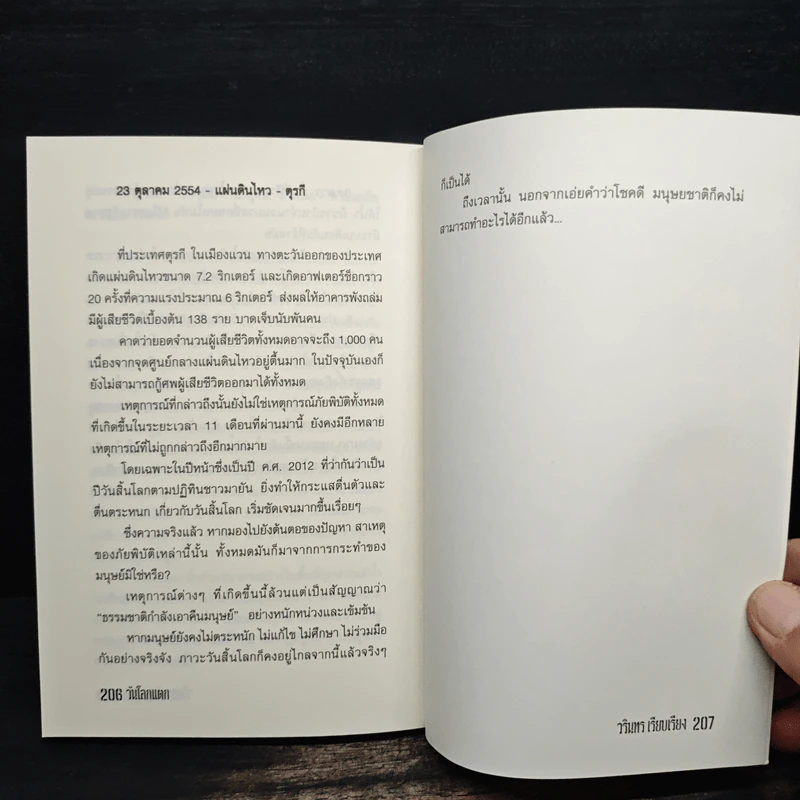 23 ตุลาคม 2554 - แผ่นดินไหว - ตุรกี
ที่ประเทศตุรกี ในเมืองแวน ทางตะวันออกของประเทศ
เกิดแผ่นดินไหวขนาด 7.2 ริกเตอร์ และเกิดอาฟเตอร์ช็อกราว
20 ครั้งที่ความแรงประมาณ 6 ริกเตอร์ ส่งผลให้อาคารพังถล่ม
มีผู้เสียชีวิตเบื้องต้น 138 ราย บาดเจ็บนับพันคน
คาดว่ายอดจำนวนผู้เสียชีวิตทั้งหมดอาจจะถึง 1,000 คน
เนื่องจากจุดศูนย์กลางแผ่นดินไหวอยู่ตื้นมาก ในปัจจุบันเองก็
ยังไม่สามารถกู้ศพผู้เสียชีวิตออกมาได้ทั้งหมด
เหตุการณ์ที่กล่าวถึงนั้นยังไม่ใช่เหตุการณ์ภัยพิบัติทั้งหมด
ที่เกิดขึ้นในระยะเวลา 11 เดือนที่ผ่านมานี้ ยังคงมีอีกหลาย
เหตุการณ์ที่ไม่ถูกกล่าวถึงอีกมากมาย
โดยเฉพาะในปีหน้าซึ่งเป็นปี ค.ศ. 2012 ที่ว่ากันว่าเป็น
ปีวันสิ้นโลกตามปฏิทินชาวมายัน ยิ่งทำให้กระแสตื่นตัวและ
ตื่นตระหนก เกี่ยวกับวันสิ้นโลก เริ่มชัดเจนมากขึ้นเรื่อยๆ
ซึ่งความจริงแล้ว หากมองไปยังต้นตอของปัญหา สาเหตุ
ของภัยพิบัติเหล่านี้นั้น ทั้งหมดมันก็มาจากการกระทำของ
มนุษย์มิใช่หรือ?
เหตุการณ์ต่างๆ ที่เกิดขึ้นนี้ล้วนแต่เป็นสัญญาณว่า
"ธรรมชาติกำลังเอาคืนมนุษย์" อย่างหนักหน่วงและเข้มข้น
หากมนุษย์ยังคงไม่ตระหนัก ไม่แก้ไข ไม่ศึกษา ไม่ร่วมมือ
กันอย่างจริงจัง ภาวะวันสิ้นโลกก็คงอยู่ไกลจากนี้แล้วจริงๆ
206 วันโลกแตก
ก็เป็นได้
ถึงเวลานั้น นอกจากเอ่ยคำว่าโชคดี มนุษยชาติก็คงไม่
สามารถทำอะไรได้อีกแล้ว...
วรินทร เรียบเรียง 207